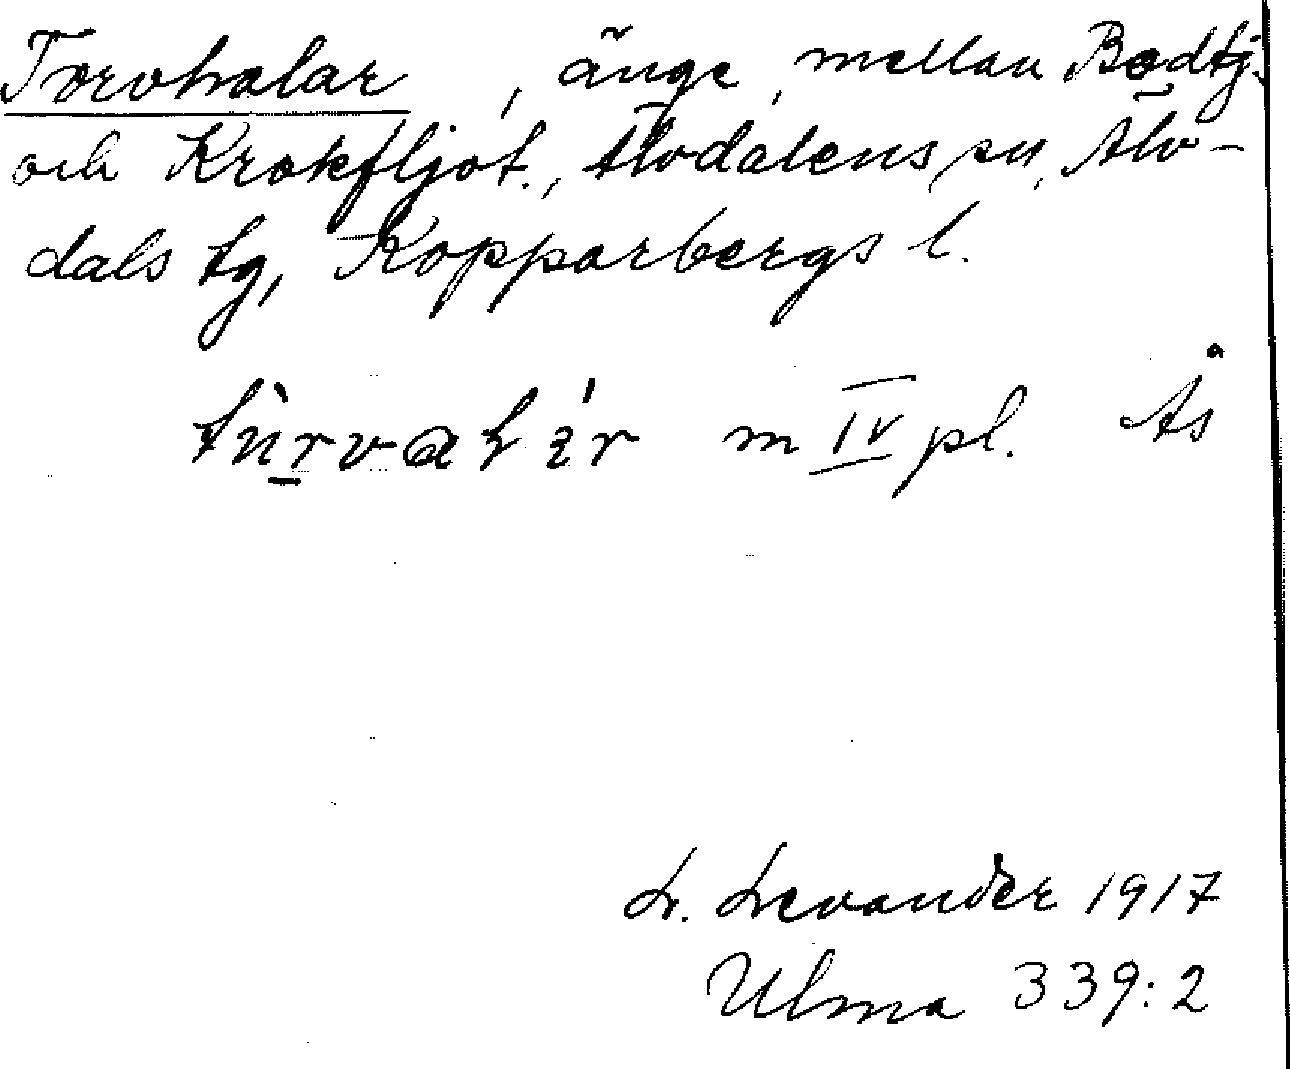 Torvhalar, änge, mellan Bodtj.
och Krokfljot., Älvdalens sn, Älv-
dals tg, Kopparbergs l.
m IV pl. Ås
L. Levander 1917
Ulma 339:2